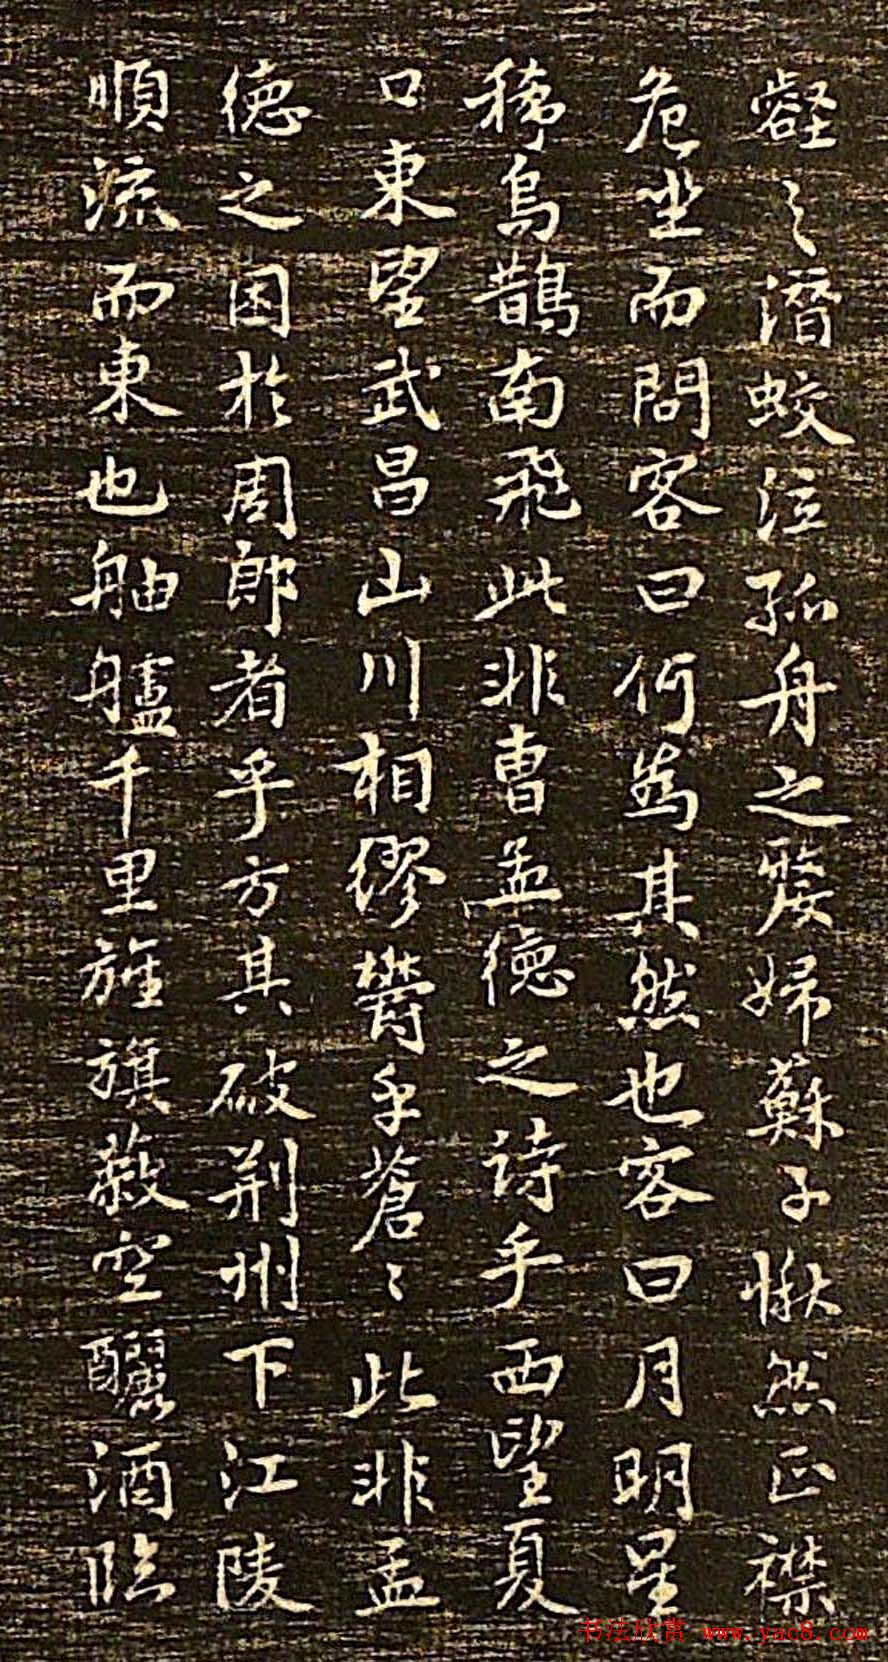 壑之潛蛟泣孤舟之嫠婦蘇子愀然正襟
危坐而問客曰何為其然也客曰月明星
稀烏鵲南飛此非曹孟德之詩乎西望夏
口東望武昌山川相繆鬱乎蒼〻此非孟
德之困於周郎者乎方其破荊州下江陵
順流而東也舳艫千里旌旗蔽空釃酒臨
书法欣赏 www.yac8.com